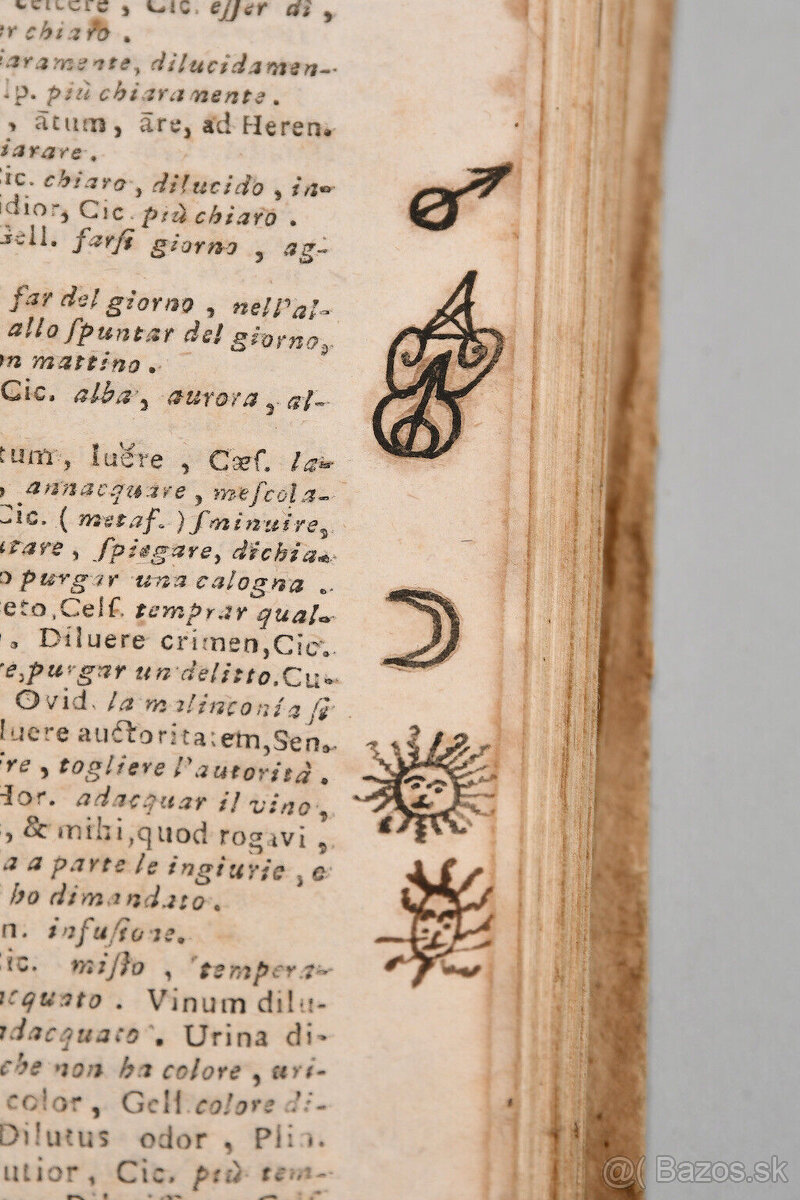 , Cic. eſſer dì ,
er chiaro .
iaramente, dilucidamen-
lp. più chiaramente .
, ātum, āre, ad Heren.
iarare .
ic. chiaro , dilucido , in-
idior, Cic. più chiaro .
Gell. farſi giorno , ag-
far del giorno , nell'al-
allo ſpuntar del giorno,
on mattino .
Cic. alba , aurora , al-
tum, luĕre , Cæſ. la-
, annacquare , meſcola-
Cic. ( metaf. ) ſminuire,
utare , ſpiegare, dichia-
o purgar una calogna .
eto,Celſ. temprar qual-
. Diluere crimen,Cic.
re,purgar un delitto.Cu-
Ovid. la malinconía ſi
luere auctoritatem,Sen.
ire , togliere l'autorità .
Hor. adacquar il vino ,
, & mihi,quod rogavi ,
a a parte le ingiurie , e
ho dimandato .
n. infuſione.
ic. miſto , tempera-
acquato . Vinum dilu-
adacquato . Urina di-
che non ha colore , uri-
color, Gell.colore di-
Dilutus odor , Plin.
utior, Cic. più tem-
@( Bazos.sk